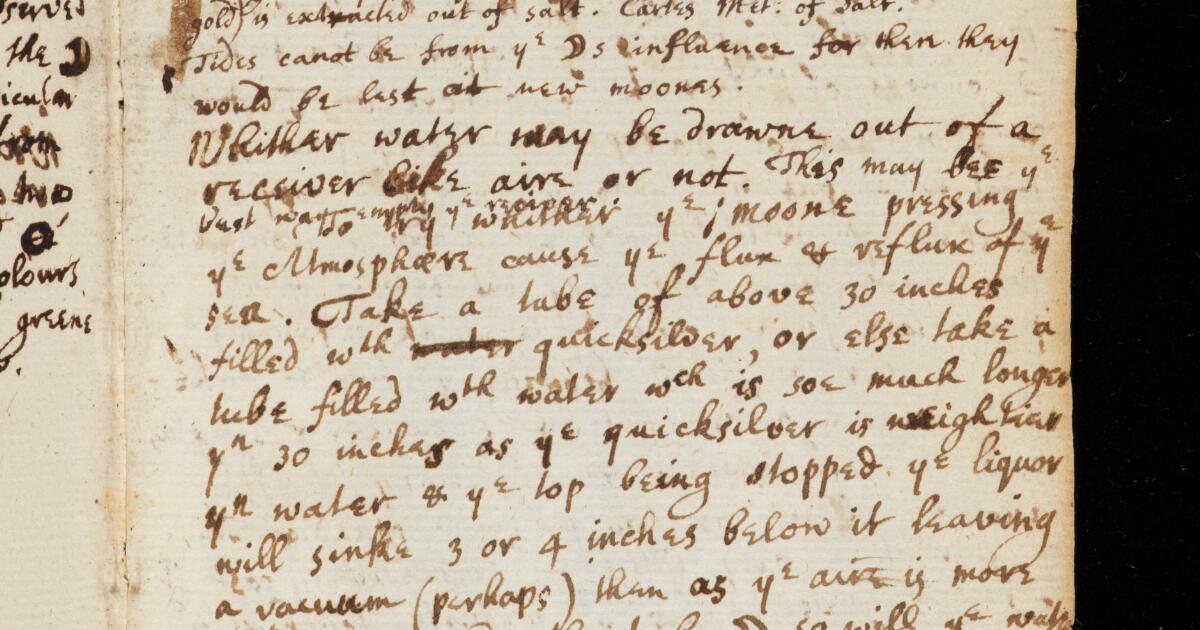 served
the ☽
icular
from
two
olours
greene
gold) is extracted out of salt. Cartes Met. of Salt.
Tides canot be from yᵉ ☽s influence for then they
would be lest at new moones.
Whither water may be drawne out of a
receiver like aire or not. This may bee yᵉ
best way to empty yᵉ receiver.
To try whither yᵉ moone pressing
yᵉ Atmosphære cause yᵉ flux & reflux of yᵉ
sea. Take a tube of above 30 inches
filled wᵗʰ water quicksilver, or else take a
tube filled wᵗʰ water wᶜʰ is soe much longer
yⁿ 30 inches as yᵉ quicksilver is weightier
yⁿ water & yᵉ top being stopped yᵉ liquor
will sinke 3 or 4 inches below it leaving
a vacuum (perhaps) then as yᵉ aire is more
☽ so will yᵉ water